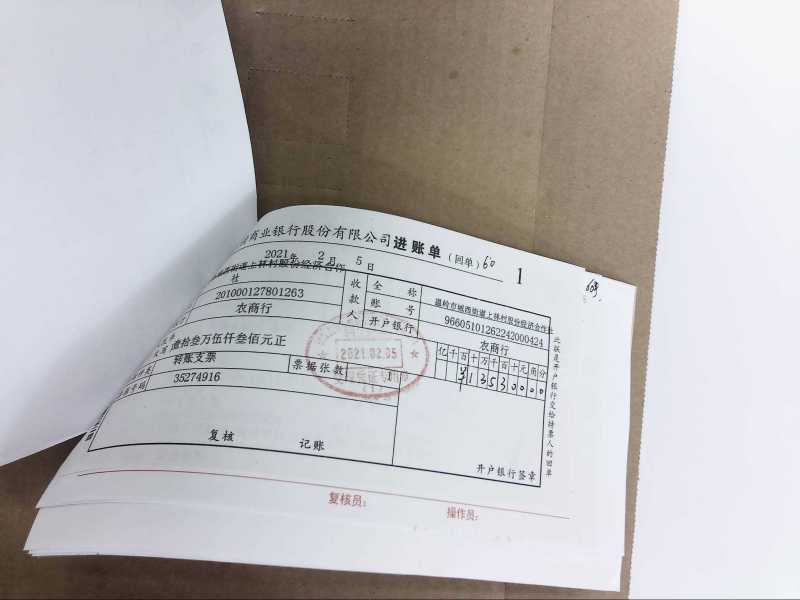 商业银行股份有限公司进账单 (回单) 60
1
2021年 2月 5日
街道上林村股份经济合作社
201000127801263
农商行
收款人
全称 温岭市城西街道上林村股份经济合作社
账号 96605101262242000424
开户银行 农商行
壹拾叁万伍仟叁佰元正
亿千百十万千百十元角分
¥13530000
转账支票
票据张数 1
35274916
2021.02.05
复核 记账
开户银行签章
此联是开户银行交给持票人的回单
复核员: 操作员: